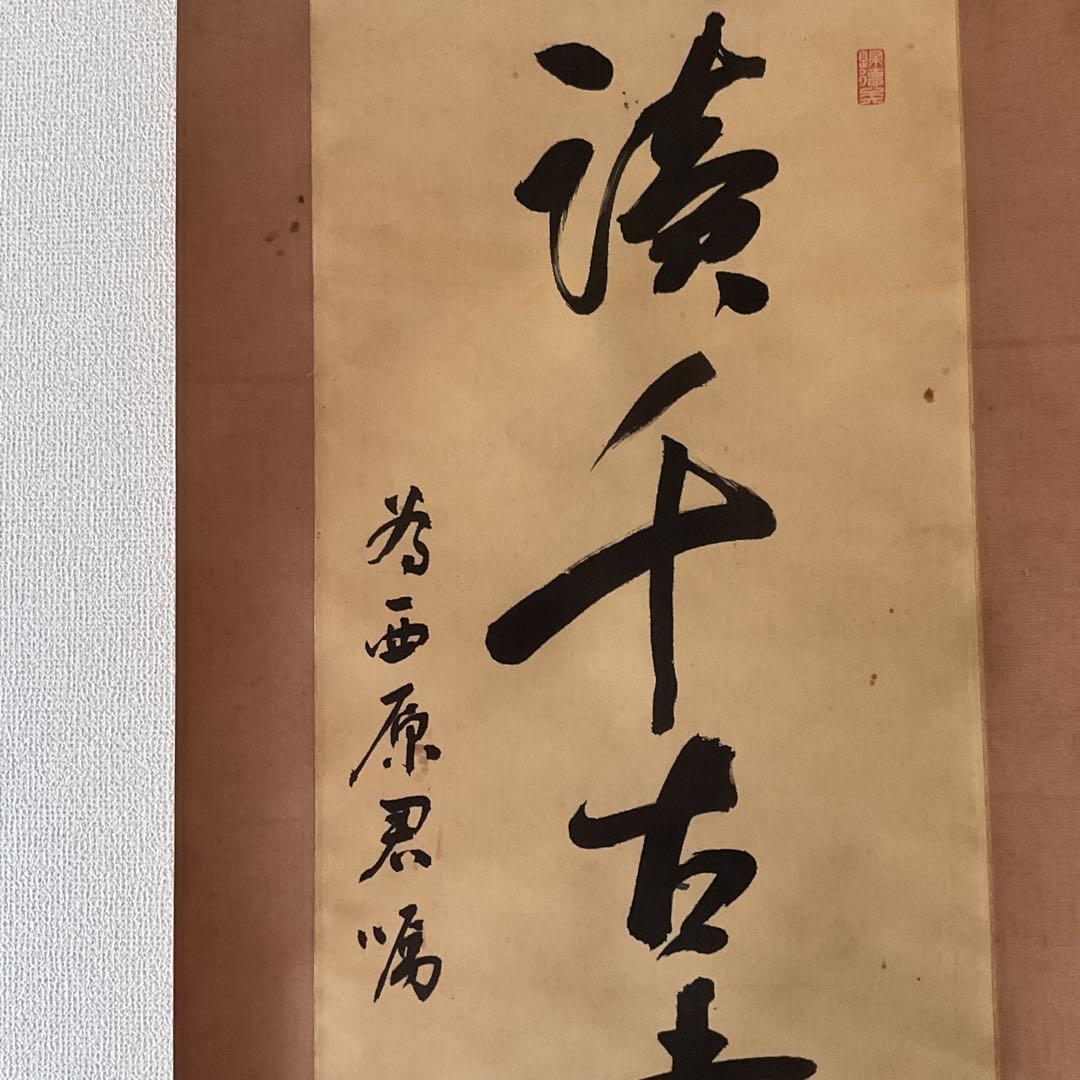 讀千古
為西原君嘱